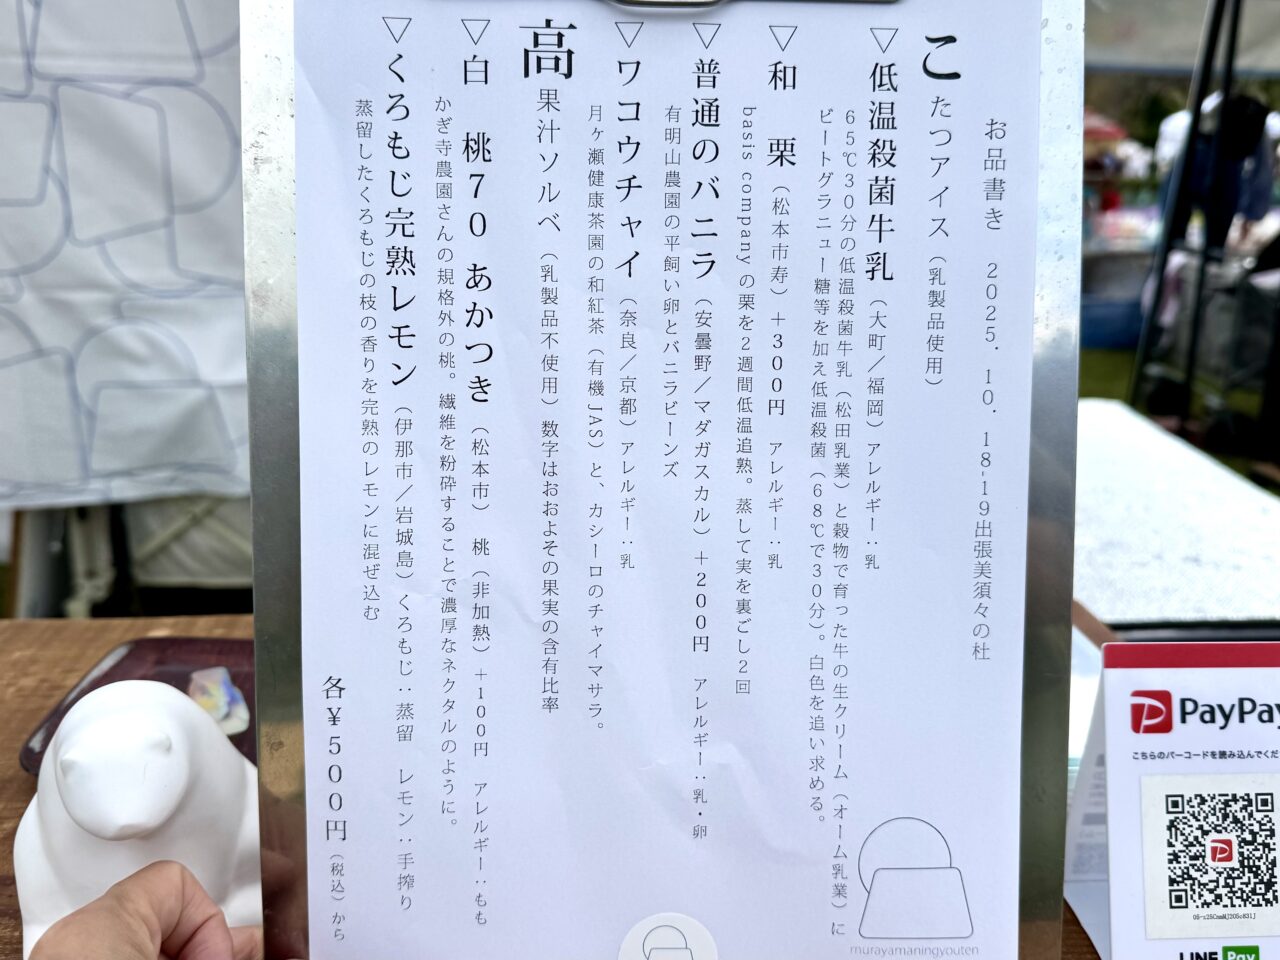 お品書き　2025.10.18-19出張美須々の杜
こたつアイス（乳製品使用）
▽低温殺菌牛乳（大町／福岡）アレルギー：乳
65℃30分の低温殺菌牛乳（松田乳業）と穀物で育った牛の生クリーム（オーム乳業）に
ビートグラニュー糖等を加え低温殺菌（68℃で30分）。白色を追い求める。
▽和　栗（松本市寿）＋300円　アレルギー：乳
basis companyの栗を2週間低温追熟。蒸して実を裏ごし2回
▽普通のバニラ（安曇野／マダガスカル）＋200円　アレルギー：乳・卵
有明山農園の平飼い卵とバニラビーンズ
▽ワコウチャイ（奈良／京都）アレルギー：乳
月ヶ瀬健康茶園の和紅茶（有機JAS）と、カシーロのチャイマサラ。
高果汁ソルベ（乳製品不使用）数字はおおよその果実の含有比率
▽白　桃70 あかつき（松本市）　桃（非加熱）＋100円　アレルギー：もも
かぎ寺農園さんの規格外の桃。繊維を粉砕することで濃厚なネクタルのように。
▽くろもじ完熟レモン（伊那市／岩城島）くろもじ：蒸留　レモン：手搾り
蒸留したくろもじの枝の香りを完熟のレモンに混ぜ込む
各￥500円（税込）から
murayamaningyouten
PayPay
こちらのバーコードを読み込んでくだ
LINE Pay